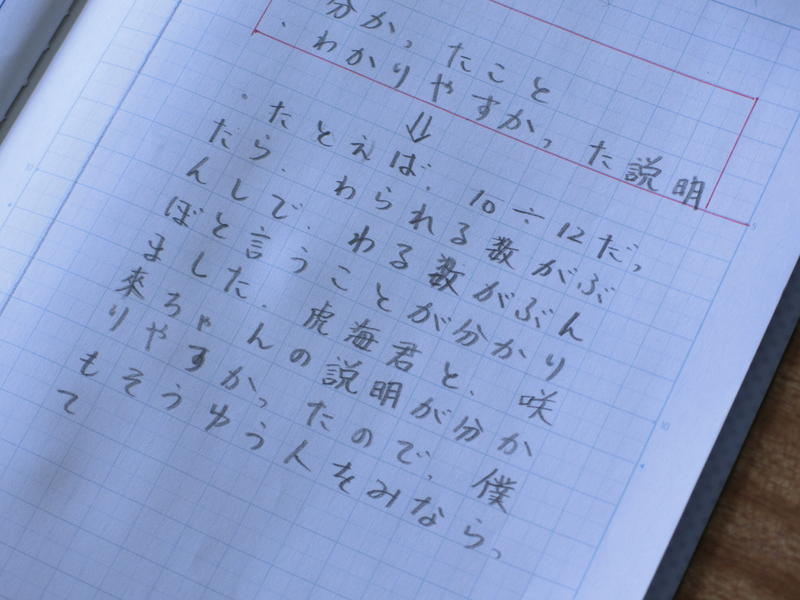 分かったこと
・わかりやすかった説明
⇓
・たとえば、10÷12だっ
たら、わられる数がぶ
んしで、わる数がぶん
ぼと言うことが分かり
ました。虎海君と、咲
來ちゃんの説明が分か
りやすかったので、僕
もそうゆう人をみならっ
て